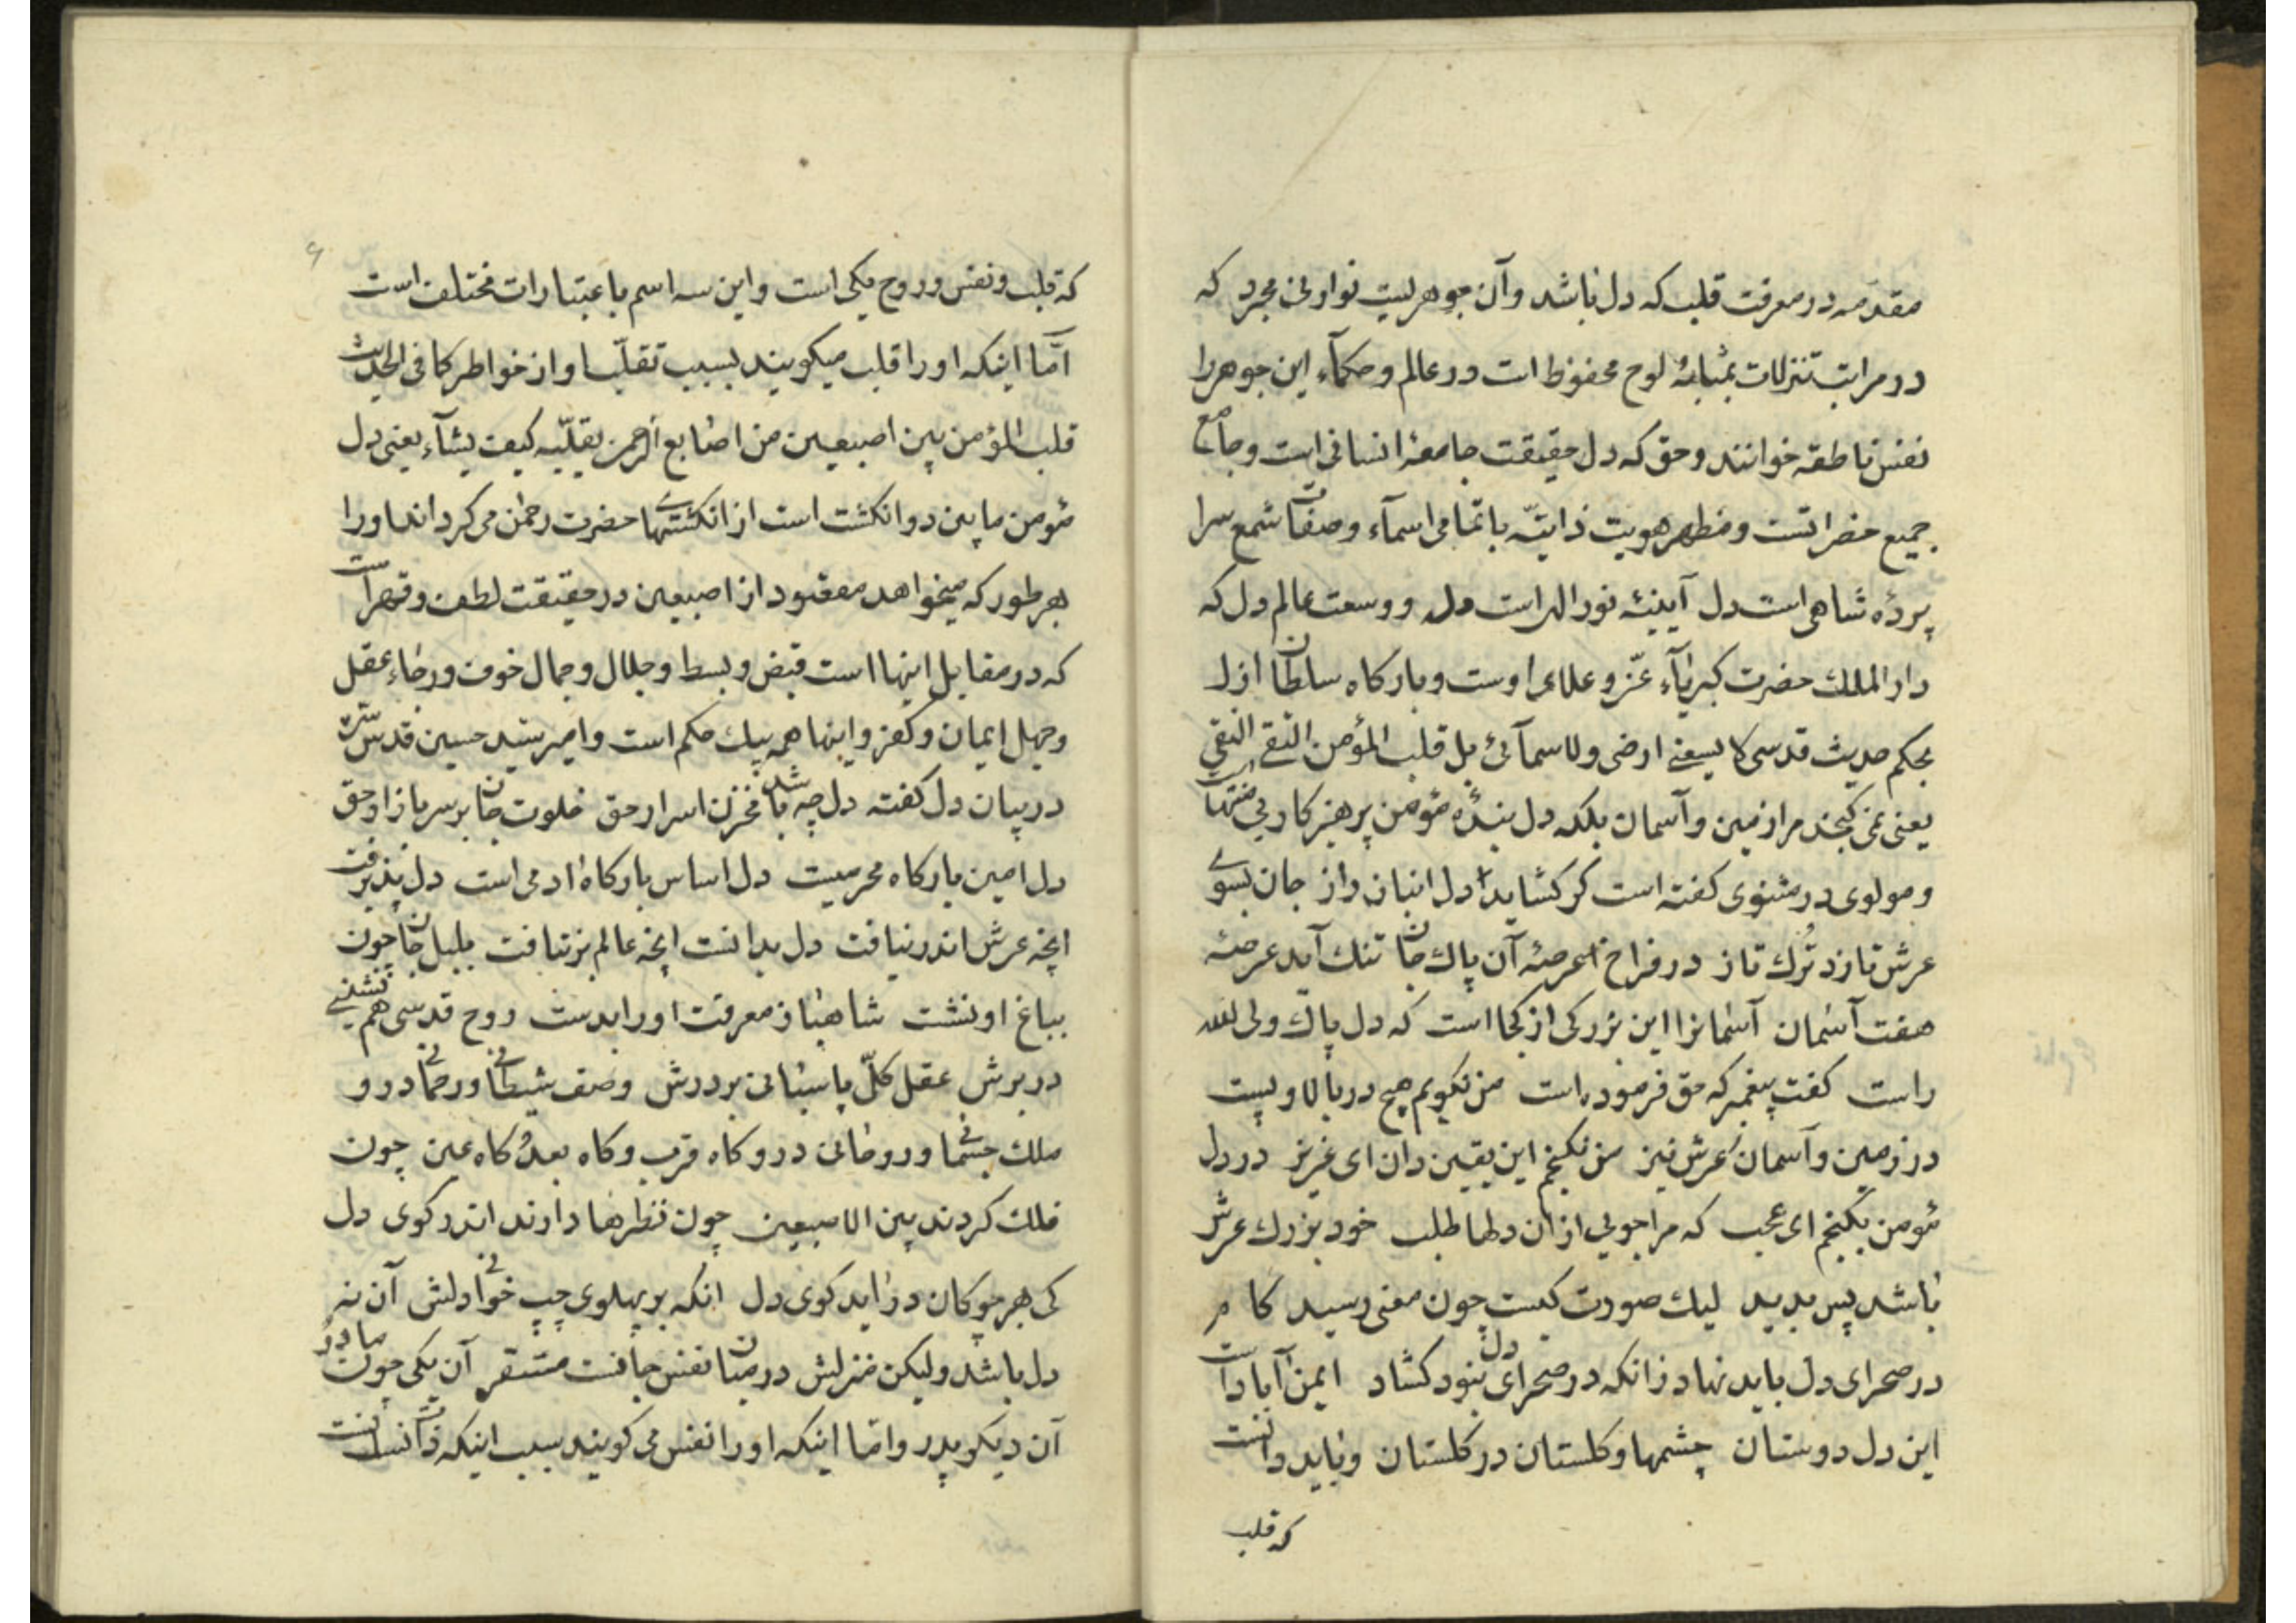 مقدّمه در معرفت قلب که دل باشد و آن جوهریست نورانی مجرد که
در مراتب تنزلات بمثابهٔ لوح محفوظ است در عالم و حکمآء این جوهر را
نفس ناطقه خوانند و حق که دل حقیقت جامعهٔ انسانی است و جامع
جمیع حضراتست و مظهر هویت ذاتیّه با تمامی اسمآء و صفات شمع سرا
پردهٔ شاهی است دل آیینهٔ نور اله است دل و وسعت عالم دل که
دار الملك حضرت کبریآء عزّ و علای اوست و بارکاه سلطان ازل
بحکم حدیث قدسی لا یسعنے ارضی ولا سمآئی بل قلب المؤمن التقی النقی
یعنی نمی کنجند مرا زمین و آسمان بلکه دل بندهٔ مؤمن پرهیزکار بی منتهاست
و مولوی در مثنوی کفته است کر کشاید دل انبان راز جان بسوے
عرش تازد تُرك تاز در فراخ عرصهٔ آن پاك جان تنك آید عرصهٔ
هفت آسمان آسمانرا این بزرکی از کجا است که دل پاك ولی الله
راست کفت پیغمبر که حق فرموده است من نکویم هیچ در بالا و پست
در زمین و آسمان و عرش نیز من نکنجم این یقین دان ای عزیز در دل
مؤمن بکنجم ای عجب که مرا جویی از ان دلها طلب خود بزرك عرش
باشد پس بدید لیك صورت کیست چون معنی رسید کام
در صحرای دل باید نهاد زانکه در صحرای دل نبود کشاد ایمن آبادست
این دل دوستان چشمها و کلستان در کلستان و باید دانست
که قلب
که قلب و نفس و روح یکی است و این سه اسم باعتبارات مختلف است
امّا اینکه او را قلب میکویند بسبب تقلّب او از خواطر کما فی الحدیث
قلب المؤمن بین اصبعین من اصابع الرحمن یقلّبه کیف یشآء یعنی دل
مؤمن مابین دو انکشت است از انکشتهاے حضرت رحمن می کرداند او را
بهر طور که میخواهد مقصود از اصبعین در حقیقت لطف و قهر است
که در مقابل اینها است قبض و بسط و جلال و جمال خوف و رجاء عقل
و جهل ایمان و کفر و اینها همه بیك حکم است و امیر سید حسین قدس سرّه
در بیان دل کفته دل چه باشد مخزن اسرار حق خلوت جان بر سر بازار حق
دل امین بارکاه محرمیست دل اساس بارکاه ادمی است دل پذیرفت
انچه عرش اندر نیافت دل بدانست انچه عالم برنتافت بلبل جان چون
بباغ او نشست شاهباز معرفت او را بدست روح قدسی هم نشینے
در برش عقل کلّ پاسبانی بر درش وصف شیطانی و رحمانی درو
ملك جسمانی و روحانی درو کاه قرب و کاه بعد و کاه عین چون
فلك کردند بین الاصبعین چون نظرها دارند اندر کوی دل
کی هر چوکان در آید کوی دل انکه بر پهلوی چپ خوانی دلش آن نه
دل باشد ولیکن منزلش در میان نفس و جانست مستقر آن یکی چون مادر و
آن دیکر پدر و امّا اینکه او را نفس می کویند بسبب اینکه ذات انسانست